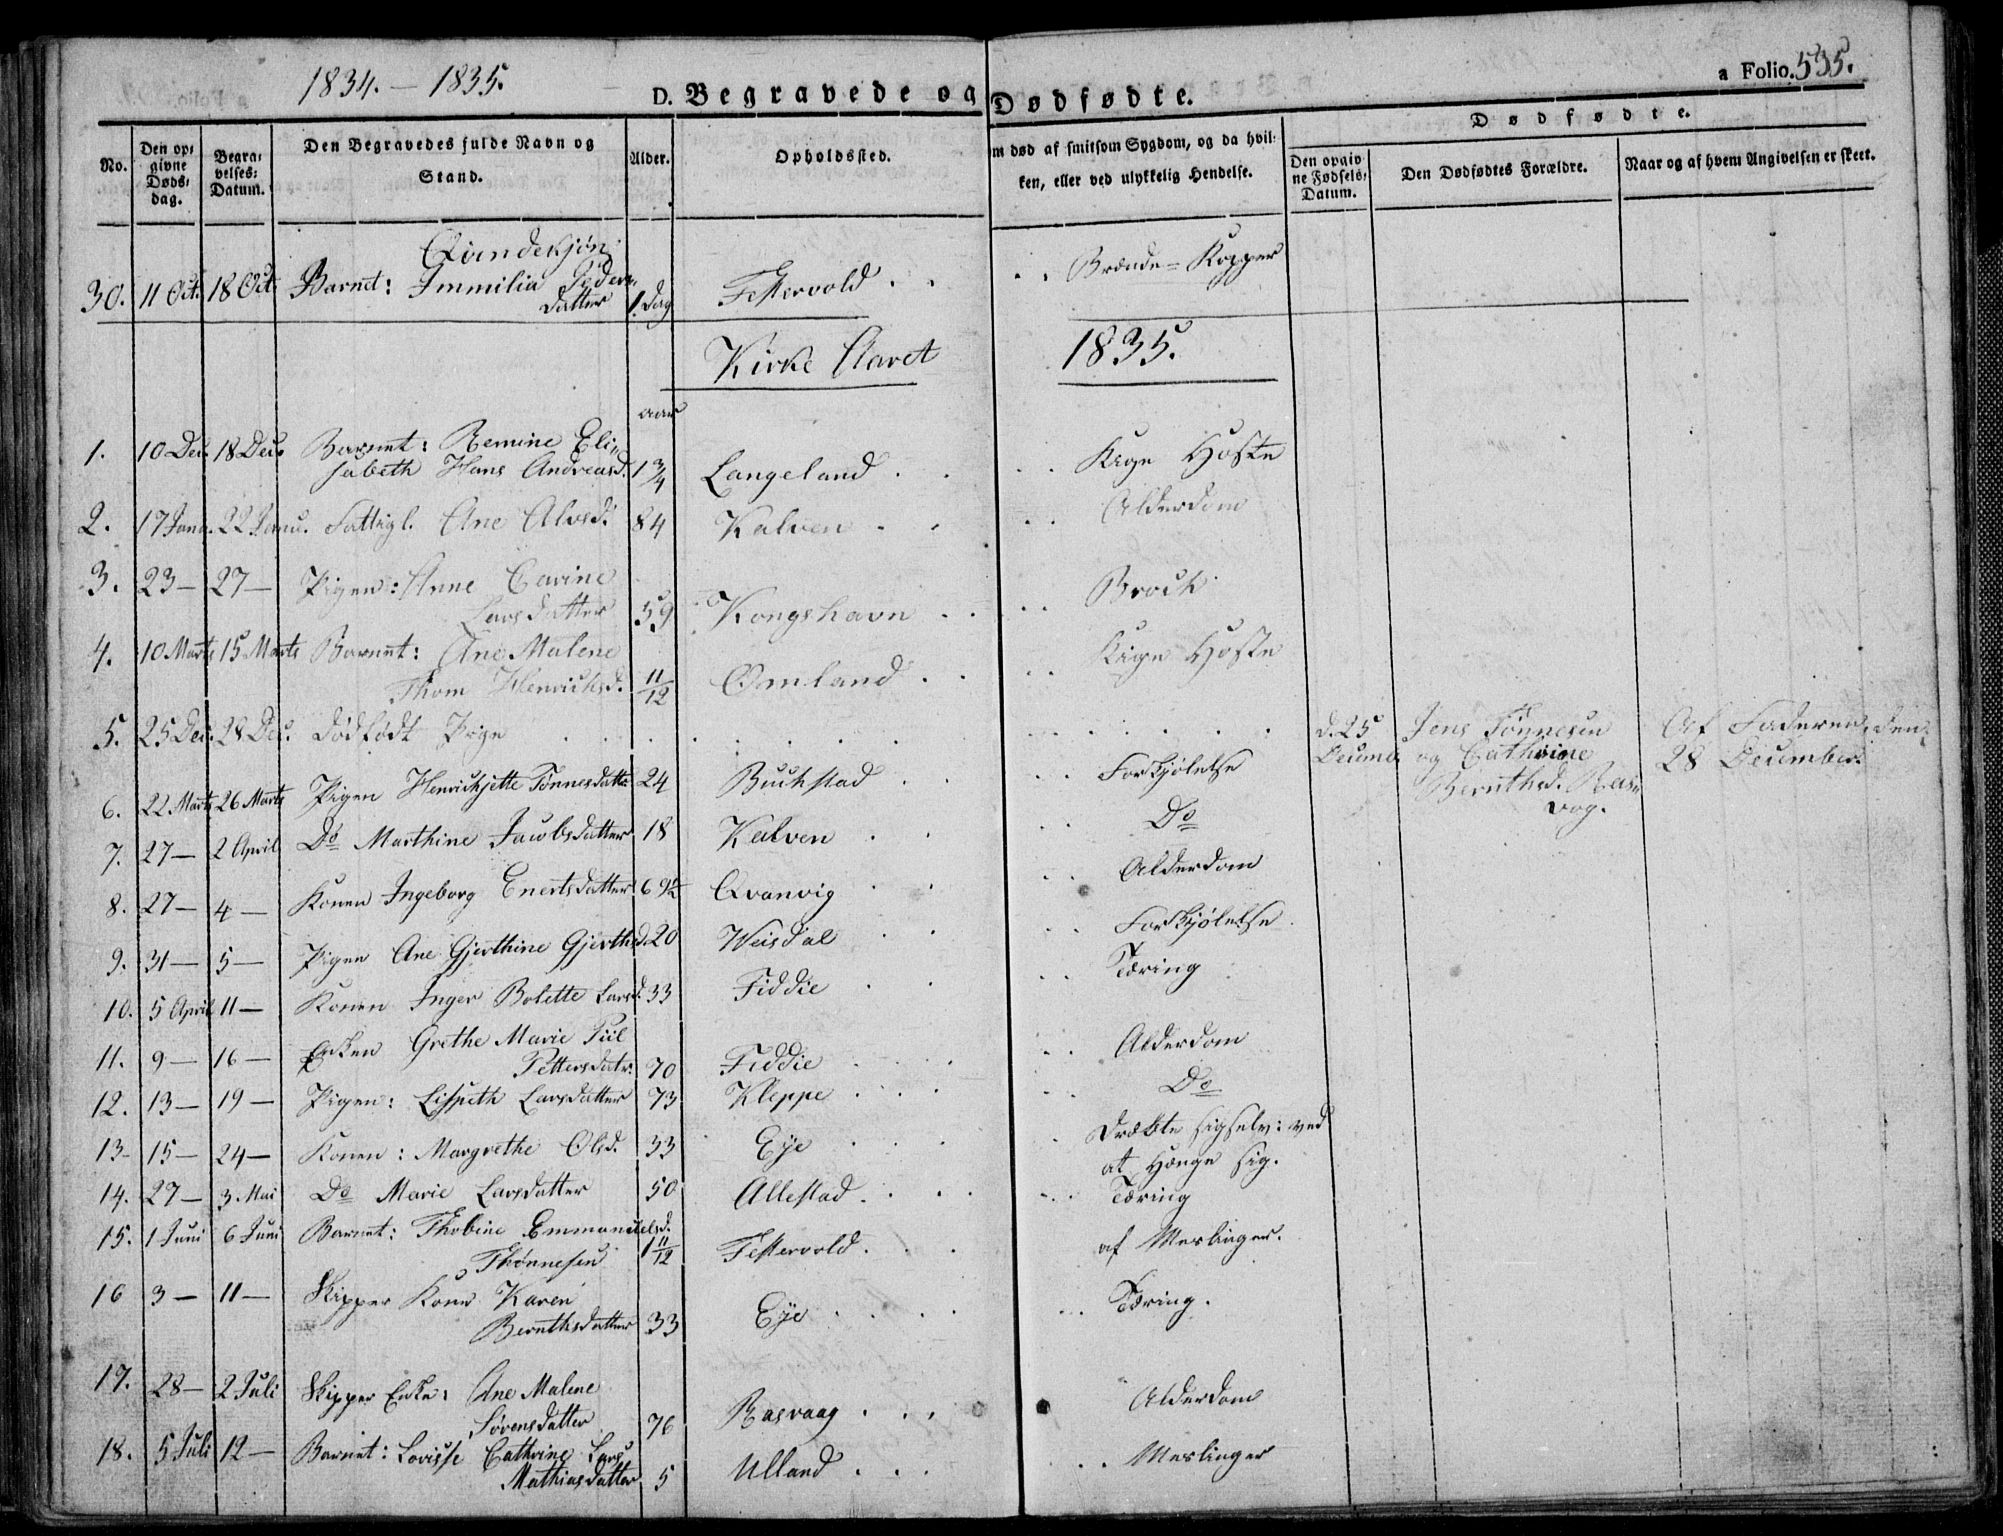 1834. - 1835.
D. Begravede og Dødfødte.
a Folio. 535.
No.
Den opgivne Døds-dag.
Begravelses-Datum.
Den Begravedes fulde Navn og Stand.
Alder.
Opholdssted.
m død af smitsom Sygdom, og da hvilken, eller ved ulykkelig Hendelse.
Dødfødte.
Den opgivne Fødsels-Datum.
Den Dødfødtes Forældre.
Naar og af hvem Angivelsen er skeet.
30. 11 Oct. 18 Oct. Barnet: Immilia Peders datter 1 Dag Festervold . . . . Brænde-Kopper
Kirke Aaret 1835.
aar
1. 10 Dec. 18 Dec. Barnet: Remine Eli-
sabeth Hans Andreasd. 1 3/4 Langeland . . . . Kige Hoste
2. 17 Janu. 22 Janu. Fattigl. Ane Alvsd. 84 Kalven . . . . Alderdom
3. 23 — 27 — Pigen: Anne Carine
Larsdatter 59 Kongshavn . . . . Brock
4. 10 Marts 15 Marts Barnet: Ane Malene
Thom Henrichsd. 11/12 Omland . . . . Kige Hoste
5. 25 Dec. 28 Dec. Dødfødt Pige . . . . d. 25 Jens Tønnesen Af Faderen, den
Decemb. og Cathrine 28 December.
Bernthsd. Ras-
vog.
6. 22 Marts 26 Marts Pigen Henrichjette Tønnesdatter 24 Buchstad . . . . Forkjølelse
7. 27 — 2 April Do Marthine Jacobsdatter 18 Kalven . . . . Do
8. 27 — 4 — Konen Ingeborg Enertsdatter 69½ Qvanvig . . . . Alderdom
9. 31 — 5 — Pigen Ane Gjerthine Gjerthsd. 20 Veisdal . . . . Forkjølelse
10. 5 April 11 — Konen Inger Bolette Larsd. 33 Fiddie . . . . Tæring
11. 9 — 16 — Enken Grethe Marie Piil
Pettersdatr. 70 Fiddie . . . . Alderdom
12. 13 — 19 — Pigen: Lispeth Larsdatter 73 Kleppe . . . . Do
13. 15 — 24 — Konen: Margrethe Olsd. 33 Eye . . . . Dræbte sigselv: ved
at hænge sig.
14. 27 — 3. Mai Do Marie Larsdatter 50 Allestad . . . . Tæring
15. 1 Juni 6 Juni Barnet: Thobine Emmanuelsd.
Thønnesen 1 11/12 Festervold . . . . af Meslinger.
16 3 — 11 — Skipper Kone Karen
Bernthsdatter 33 Eye . . . . Tæring.
17. 28 — 2 Juli Skipper Enke: Ane Malene
Sørensdatter 76 Rasvaag . . . . Alderdom
18. 5 Juli 12 — Barnet: Lovisse Cathrine Lars
Mathiasdatter 5 Ulland . . . . Meslinger